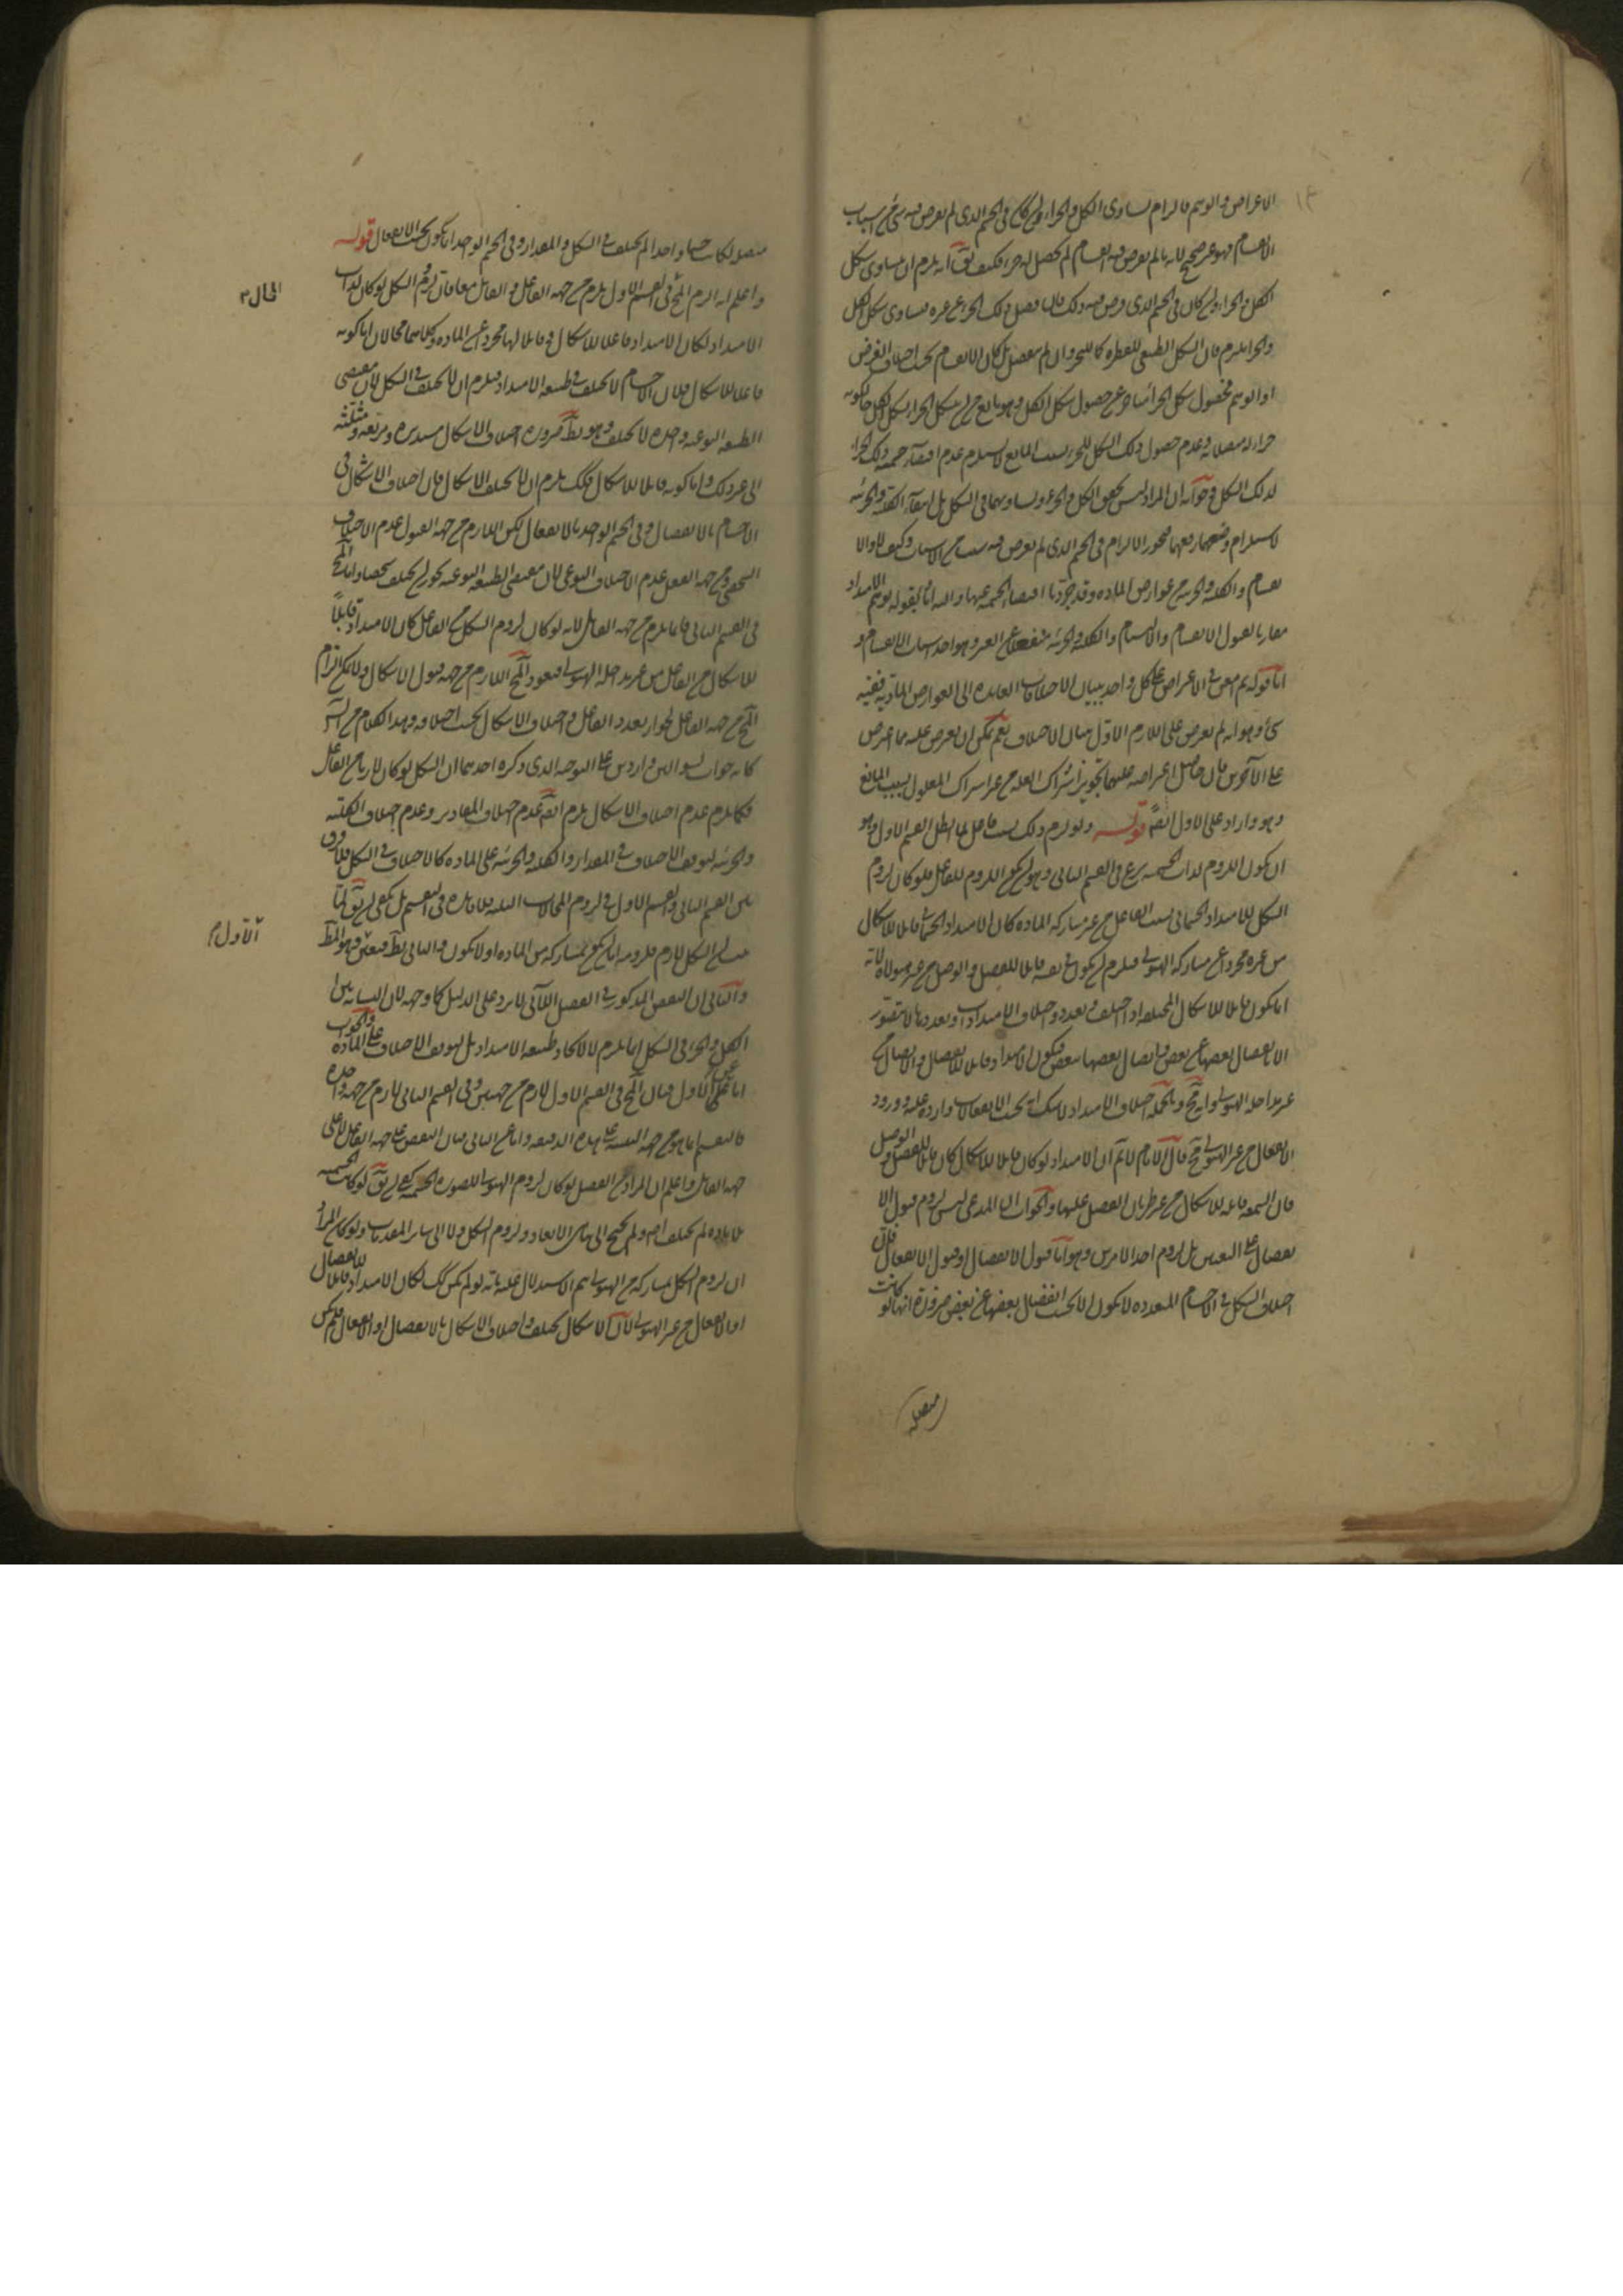 الاعراض والوهم فالزام تساوى الكل والجزء ان كان فى الجسم الذى لم يعرض فيه شئ من اسباب
الانقسام فهو غير صحيح لانه ما لم يعرض فيه انقسام لم يحصل له جزء فكيف يق انه يلزم ان يساوى شكل
الكل والجزء وان كان فى الجسم الذى فرض فيه ذلك فان انفصل ذلك الجزء عن غيره فتساوى شكل الكل
والجزء ملتزم فان الشكل الطبيعى للقطرة كالبحر وان لم ينفصل بل كان الانقسام بحسب اختلاف الفرض
او التوهم فحصول شكل الجزء متأخر عن حصول شكل الكل وهو مانع من ان يتشكل الجزء بشكل الكل حال كونه
جزءا له متصلا به وعدم حصول ذلك الشكل للجزء بسبب المانع لا يستلزم عدم اقتضاء جسمية ذلك الجزء
لذلك الشكل وجوابه ان المراد ليس تحقق الكل والجزء وتساويهما فى الشكل بل انتفاء الكلية والجزئية
لاستلزام وضعهما رفعهما فنختار الالزام فى الجسم الذى لم يعرض فيه سبب من الاسباب وكيف لا والا
نقسام والكلية والجزئية من عوارض المادة وقد جردنا اقتضاء الجسمية عنها واليه اشار بقوله توهم الامتداد
مقارنا لقبول الانقسام والالتيام والكلية والجزئية منفعلا عن الغير وهو احد اسباب الانقسام و
اما قوله ثم امعن فى الاعراض على كل واحد ببيان الاختلافات العائدة الى العوارض المادية ففيه
شئ وهو انه لم يعرض على اللازم الاول ببيان الاختلاف نعم يمكن ان يعرض عليه ما اعرض
على الآخرين فان حاصل اعراضه عليهما تجويز اشتراك العلة من غير اشتراك المعلول بسبب المانع
وهو وارد على الاول ايضا قوله ولو لزم ذلك بسبب فاعل لما ابطل القسم الاول وهو
ان يكون اللزوم لذات الجسمية شرع فى القسم الثانى وهو ان يكون اللزوم للفاعل فلو كان لزوم
الشكل للامتداد الجسمانى بسبب الفاعل من غير مشاركة المادة كان الامتداد الجسمانى قابلا للاشكال
من غيره مجردا عن مشاركة الهيولى فيلزم ان يكون فى نفسه قابلا للفصل والوصل من غير هيولاه لانه
انما يكون قابلا للاشكال المختلفة اذا اختلف وتعدد واختلاف الامتدادات وتعددها لا يتصور
الا بانفصال بعضها عن بعض واتصال بعضها ببعض فيكون الامتداد قابلا للانفصال والاتصال من
غير مداخلة الهيولى وانه مح وبالجملة اختلاف الامتداد لا شك انه بحسب الانفعالات واردة عليه وورود
الانفعال من غير الهيولى مح قال الامام لا نم ان الامتداد لو كان قابلا للاشكال كان قابلا للفصل والوصل
فان الشمعة قابلة للاشكال من غير طريان الفصل عليها والجواب ان المدعى ليس لزوم قبول الا
نفصال على التعيين بل لزوم احد الامرين وهو اما قبول الانفصال او قبول الانفعال فلان
اختلاف الشكل فى الاجسام المتعددة لا يكون الا بحسب انفصال بعضها عن بعض ضرورة انها لو كانت
متصلة
متصلة لكانت جسما واحدا لم يختلف فى الشكل والمقدار وفى الجسم الواحد انما يكون بحسب الانفعال قوله
واعلم انه الزم المح فى القسم الاول يلزم من جهة الفاعل والقابل معا فان لزوم الشكل لو كان لذات
الامتداد لكان الامتداد فاعلا للاشكال وقابلا لها مجردا عن المادة وكلاهما محالان اما كونه
المحال
فاعلا للاشكال فلان الاجسام لا يختلف فى طبيعة الامتداد فيلزم ان لا يختلف فى الشكل لان مقتضى
الطبيعة النوعية واحدة لا يختلف وهو بط ضرورة اختلاف الاشكال مستديرة ومربعة ومثلثة
الى غير ذلك واما كونه قابلا للاشكال فلانه يلزم ان لا يختلف الاشكال فان اختلاف الاشكال فى
الاجسام بالانفصال وفى الجسم الواحد بالانفعال لكن اللازم من جهة القبول عدم الاختلاف
الشخصى ومن جهة الفعل عدم الاختلاف النوعى لان مقتضى الطبيعة النوعية يجوز ان يختلف شخصا واما المح
فى القسم الثانى فانما يلزم من جهة القابل لانه لو كان لزوم الشكل من الفاعل كان الامتداد قابلا
للاشكال من الفاعل من غير مداخلة الهيولى فيعود المح اللازم من جهة قبول الاشكال ولا يمكن الزام
المح من جهة الفاعل لجواز تعدد الفاعل واختلاف الاشكال بحسب اختلافه وهذا الكلام من الش
كانه جواب لسؤالين واردين على التوجيه الذى ذكره احدهما ان الشكل لو كان لازما من الفاعل
فكما يلزم عدم اختلاف الاشكال يلزم ايضا عدم اختلاف المقادير وعدم اختلاف الكلية
والجزئية لتوقف الاختلاف فى المقدار والكلية والجزئية على المادة كالاختلاف فى الشكل فلا فرق
بين القسم الثانى والقسم الاول فى لزوم المحالات الثلثة فلا فائدة فى التقسيم بل يكفى ان يق لما
ثبت ان الشكل لازم فلزومه اما ان يكون بمشاركة من المادة او لا يكون والثانى بط فتعين الاول وهو المط
والثانى ان النقض المذكور فى الفصل الآتى لا يرد على الدليل كما وجه لان التشابه بين
الكل والجزء فى الشكل انما يلزم لا لاتحاد طبيعة الامتداد بل لتوقف الاختلاف على المادة والجواب
اما عن الاول فبان المح فى القسم الاول لازم من جهتين وفى القسم الثانى لازم من جهة واحدة
فالتقسيم انما هو من جهة التنبيه على هذه الدقيقة واما عن الثانى فبان النقض على جهة الفاعل لا على
جهة القابل واعلم ان المراد من الفصل لو كان لزوم الهيولى للصورة الجسمية كفى ان يق لو كانت الجسمية
بلا مادة لم يختلف اصلا ولم يحتج الى تناهى الابعاد ولزوم الشكل ولا الى سائر المقدمات ولو كان المراد
ان لزوم الشكل بمشاركة من الهيولى تم الاستدلال عليه بانه لو لم يكن كك لكان الامتداد قابلا للانفصال
او الانفعال من غير الهيولى لان الاشكال يختلف واختلاف الاشكال بالانفصال او الانفعال فلم يكن